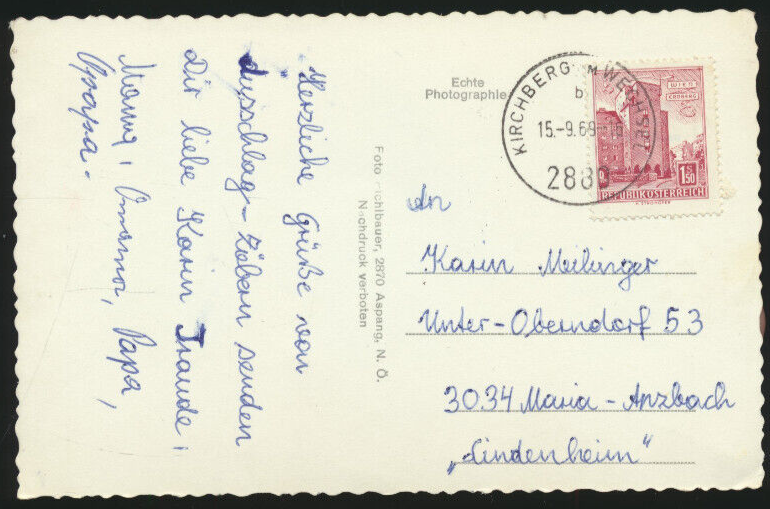 Herzliche Grüße von
Ausschlag-Zöbern senden
Dir liebe Karin Traude,
Mama, Omama, Papa,
Opapa.
Echte
Photographie
Foto 2870 Aspang, N. Ö.
Nachdruck verboten
KIRCHBERG AM WECHSEL
b
15.-9.69
2880
WIEN
ERDBERG
1S50
REPUBLIK ÖSTERREICH
An
Karin
Unter-Oberndorf 53
3034 Maria-Anzbach
„Lindenheim“